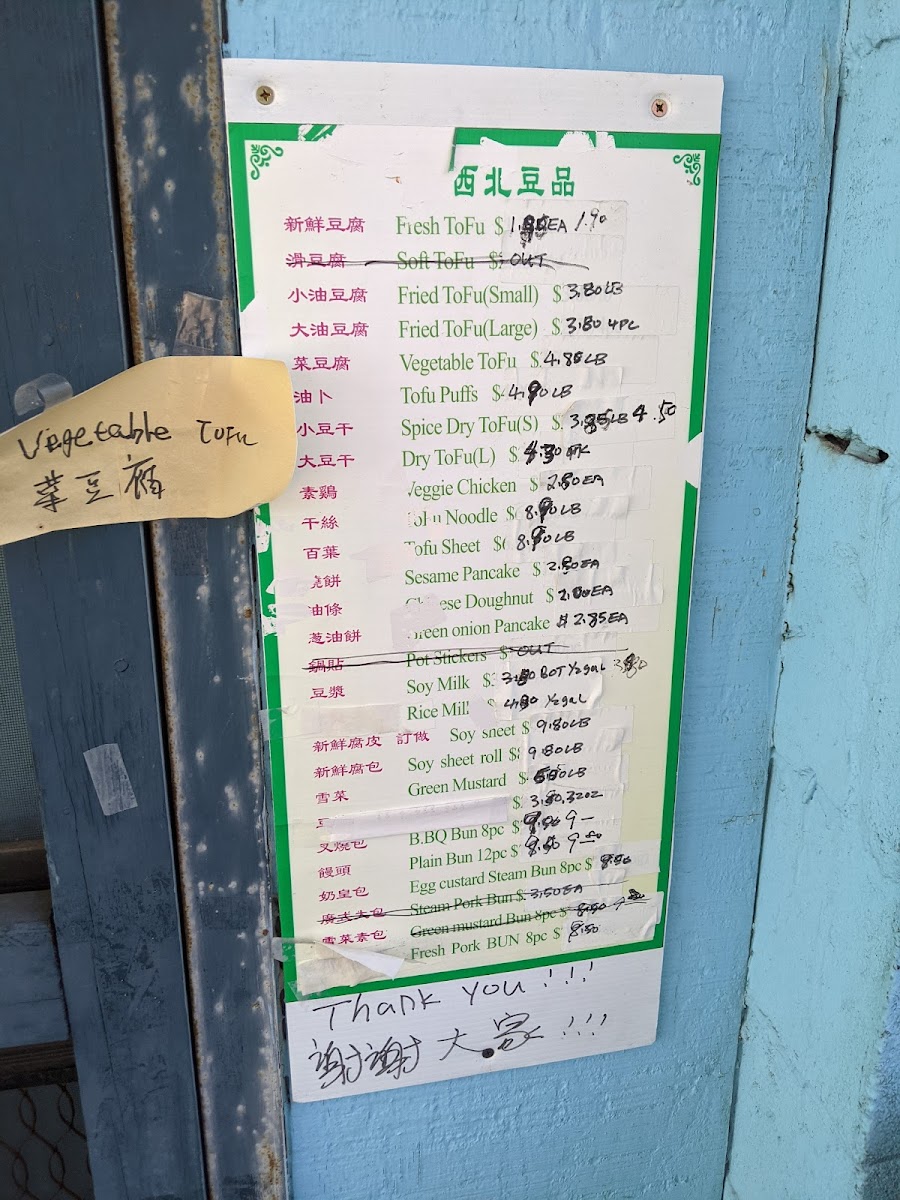 西北豆品
新鮮豆腐 Fresh ToFu $ EA 1.90
滑豆腐 Soft ToFu $ OUT
小油豆腐 Fried ToFu(Small) $ 3.80 LB
大油豆腐 Fried ToFu(Large) $ 3.80 4PC
Vegetable TOFU
菜豆腐
菜豆腐 Vegetable ToFu $ 4.80 LB
油卜 Tofu Puffs $ 4.90 LB
小豆干 Spice Dry ToFu(S) $ LB 4.50
大豆干 Dry ToFu(L) $
素鷄 Veggie Chicken $ 2.80 EA
干絲 Tofu Noodle $ 8.90 LB
百葉 Tofu Sheet $ 8.90 LB
燒餅 Sesame Pancake $ 2.80 EA
油條 Chinese Doughnut $ EA
葱油餅 Green onion Pancake $ 2.85 EA
鍋貼 Pot Stickers $ OUT
豆漿 Soy Milk $ BOT
Rice Milk $ 4.80
新鮮腐皮 訂做 Soy sheet $ 9.80 LB
新鮮腐包 Soy sheet roll $ 9.80 LB
雪菜 Green Mustard $ LB
$ 3.80 32oz
叉燒包 B.BQ Bun 8pc $ 9-
饅頭 Plain Bun 12pc $
奶皇包 Egg custard Steam Bun 8pc $
廣式大包 Steam Pork Bun $ 3.50 EA
雪菜素包 Green mustard Bun 8pc $ 8.50
Fresh Pork BUN 8pc $ 8.50
Thank you!!!
謝謝大家!!!